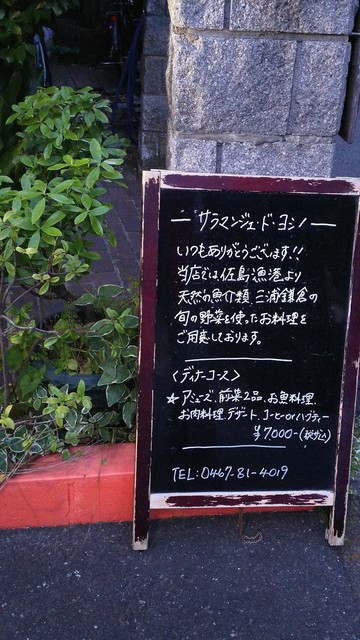 サラマンジェ・ド・ヨシノ
いつもありがとうございます!!
当店では佐島漁港より
天然の魚介類 三浦鎌倉の
旬の野菜を使ったお料理を
ご用意しております。
<ディナーコース>
★アミューズ、前菜2品、お魚料理、
お肉料理、デザート、コーヒーorハーブティー
¥7,000-(税サ込)
TEL:0467-81-4019